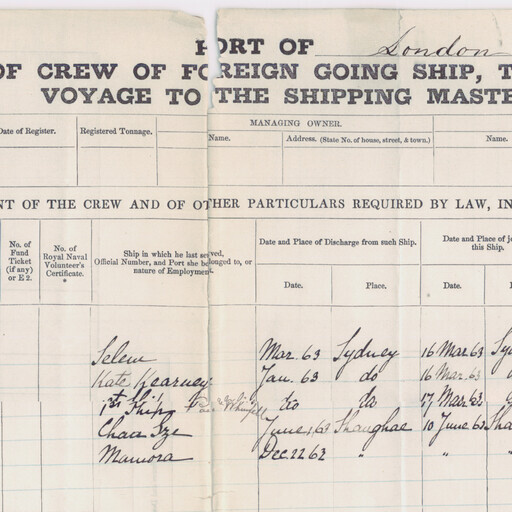 PORT OF London
OF CREW OF FOREIGN GOING SHIP, T
VOYAGE TO THE SHIPPING MASTE
Date of Register. Registered Tonnage. MANAGING OWNER.
Name. Address. (State No. of house, street, & town.) Name.
NT OF THE CREW AND OF OTHER PARTICULARS REQUIRED BY LAW, IN
No. of Fund Ticket (if any) or E 2. No. of Royal Naval Volunteer's Certificate. * Ship in which he last served, Official Number, and Port she belonged to, or nature of Employment. Date and Place of Discharge from such Ship. Date and Place of j this Ship.
Date. Place. Date.
Selem Mar. 63 Sydney 16 Mar. 63 Sy
Kate Kearney Jan. 63 do 16 Mar. 63
1st Ship do do 17 Mar. 63
Chaa Sze June 1, 63 Shanghae 10 June. 63 Sha
Mamora Dec. 22 62 " " "